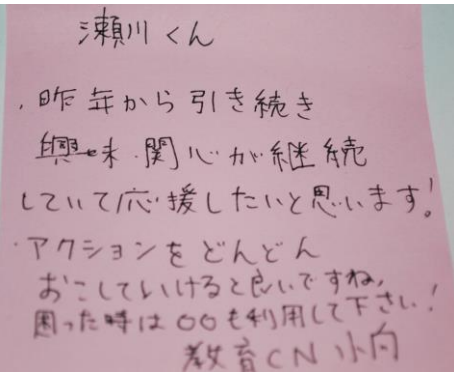 瀬川くん
・昨年から引き続き
興味・関心が継続
していて応援したいと思います!
・アクションをどんどん
おこしていけると良いですね。
困った時は〇〇も利用して下さい!
教育CN 小向